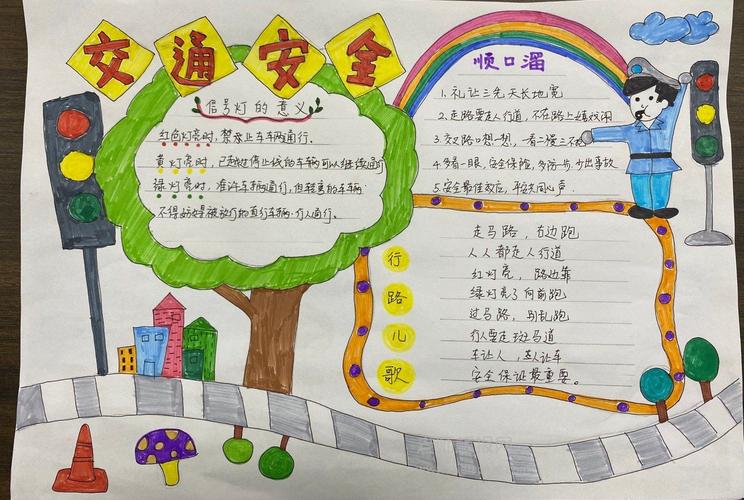 交通安全
信号灯的意义
红色灯亮时,禁止车车两通行.
黄灯亮时,已越过停止线的车辆可以继续通行
绿灯亮时,准许车辆通行,但转弯的车辆
不得妨碍被放行的直行车辆.行人通行.
顺口溜
1.礼让三先天长地宽
2.走路要走人行道,不在路上嬉戏闹
3.交叉路口想一想,一看二慢三不抢
4.多看一眼,安全保险,多防一步,少出事故
5.安全最佳效应,平安共同心声
行路儿歌
走马路,右边跑
人人都走人行道
红灯亮,路边靠
绿灯亮了向前跑
过马路,别乱跑
行人要走斑马道
车让人,人让车
安全保证最重要。